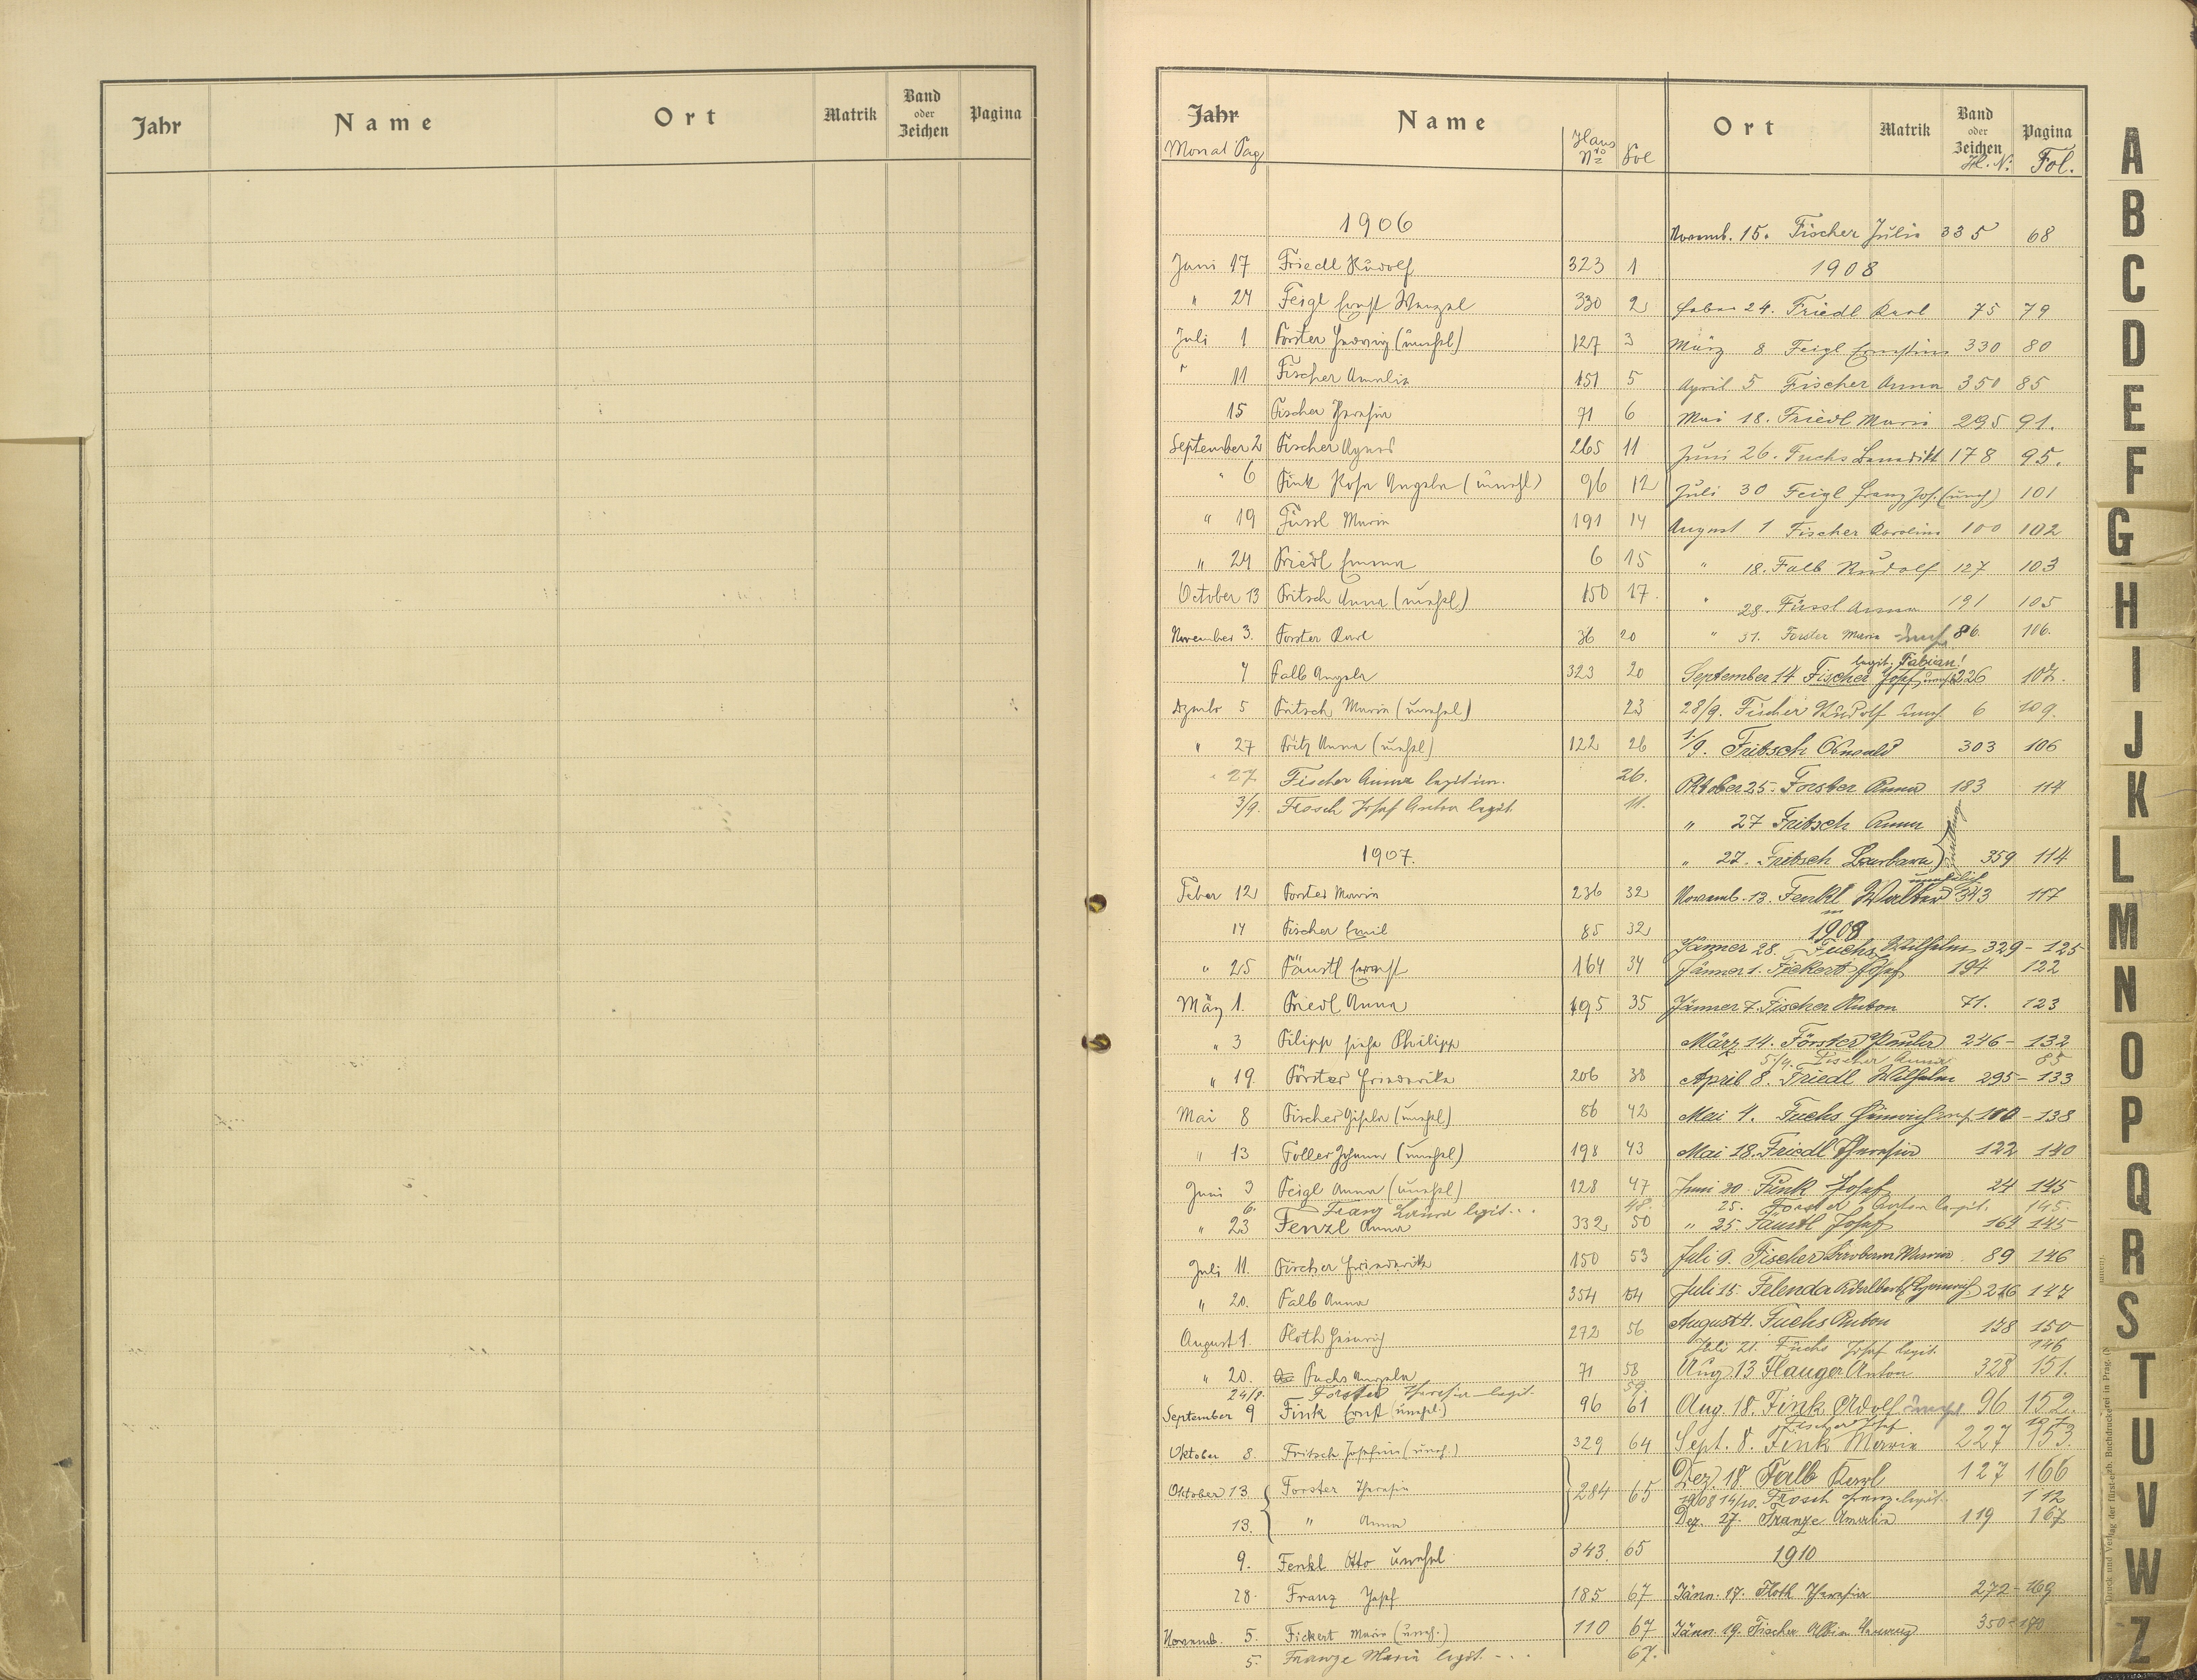 Jahr Name Ort Matrik Band oder Zeichen Pagina
Jahr Name Haus No Fol Ort Matrik Band oder Zeichen Pagina
Monat Tag H. N: Fol.
1906
Juni 17 Friedl Rudolf 323 1
" 24 Feigl Ernst Wenzel 330 2
Juli 1 Forster Hedwig (unehl) 127 3
" 11 Fischer Amalia 151 5
15 Fischer Theresia 71 6
September 2 Fischer Agnes 265 11
" 6 Fink Rosa Angela (unehl) 96 12
" 19 Füssl Maria 191 14
" 24 Friedl Emma 6 15
October 13 Fritsch Anna (unehl) 150 17
November 3. Forster Karl 36 20
7 Falb Angela 323 20
Dezmbr 5 Fritsch Maria (unehel) 23
" 27 Fritz Anna (unehl) 122 26
27 Fischer Anna legitim. 26.
3/9. Frosch Josef Anton legit. 11.
1907.
Feber 12 Forster Maria 236 32
14 Fischer Emil 85 32
" 25 Fäustl Ernst 164 34
März 1. Friedl Anna 195 35
" 3 Filipp siehe Philipp
" 19. Förster Friederika 206 38
Mai 8 Fischer Gisela (unehl) 86 42
" 13 Foller Johann (unehl) 198 43
Juni 3 Feigl Anna (unehl) 128 47
6. Franz Laura legit... 48.
" 23 Fenzl Anna 332 50
Juli 11. Fischer Friederika 150 53
" 20. Falb Anna 354 54
August 1. Floth Heinrich 272 56
" 20. Fuchs Angela 71 58
24/8. Forster Theresia legit. 59.
September 9 Fink Ernst (unehl) 96 61
Oktober 8. Fritsch Josefine (uneh.) 329 64
Oktober 13 Forster Theresia 284 65
13. " Anna
9. Fenkl Otto unehel 343. 65
28. Franz Josef 185 67
Novemb. 5. Fickert Maria (uneh.) 110 67
5. Franze Maria legit. - .. 67.
Novemb. 15. Fischer Julie 335 68
1908
Feber 24. Friedl Karl 75 79
März 8. Feigl Ernestine 330 80
April 5 Fischer Anna 350 85
Mai 18. Friedl Marie 295 91.
Juni 26. Fuchs Benedikt 178 95.
Juli 30 Feigl Franz Jos. (uneh) 101
August 1 Fischer Karolina 100 102
" 18. Falb Rudolf 127 103
" 28. Füssl Anna 191 105
" 31. Forster Maria uneh 86. 106.
legit. Fabian!
September 14 Fischer Josef 226 107.
28/9. Fischer Rudolf uneh. 6 109.
1./9. Fritsch Oswald 303 106
Oktober 25. Forster Anna 183 114
" 27 Fritsch Anna
" 27. Fritsch Barbara Zwillinge 359 114
unehelich
Novemb. 13. Fenkl Walter 343 117
1909
Jänner 28. Fuchs Wilhelm 329 - 125
Jänner 1. Fickert Josef 194 122
Jänner 7. Fischer Anton 71. 123
März 14. Förster Paula 246 - 132
5./4. Fischer Anna 85
April 8. Friedl Wilhelm 295 - 133
Mai 4. Fuchs Heinrich 100 - 138
Mai 18. Friedl Theresia 122 140
Juni 20. Fink Josef 24 145
25. Forster Anton legit. 145.
" 25. Fäustl Josef 164 145
Juli 9. Fischer Barbara Maria 89 146
Juli 15. Felenda Adalbert (Heinrich) 216 147
August 4. Fuchs Anton 178 150
Juli 21. Fuchs Josef legit. 146
Aug. 13 Flauger Anton 328 151.
Aug. 18. Fink Adolf uneh 96 152.
Fischer Josef
Sept. 8. Fink Maria 227 153.
Dez. 18 Falb Karl 127 166
1908 14/10. Frosch Franz legit. 112
Dez. 27. Franze Amalia 119 167
1910
Jänn. 17. Floth Theresia 272 - 169
Jänn. 19. Fischer Albin 350 - 170
A
B
C
D
E
F
G
H
I
J
K
L
M
N
O
P
Q
R
S
T
U
V
W
Z